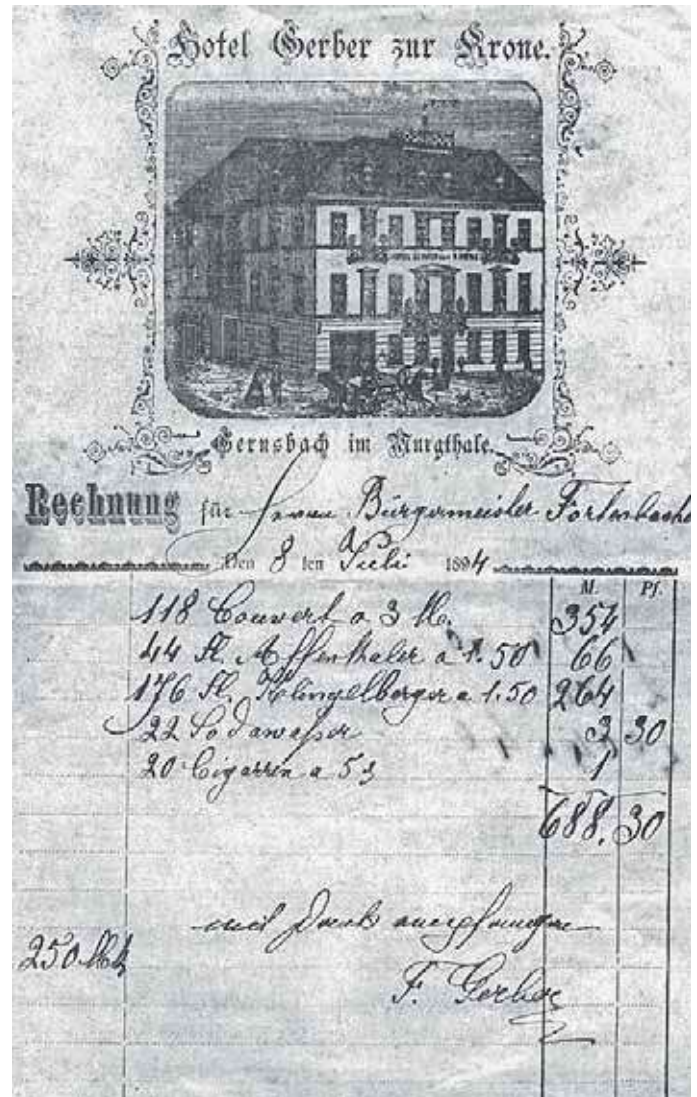 Hotel Gerber zur Krone.
Gernsbach im Murgthale.
Rechnung für Herrn Bürgermeister
Den 8 ten Juli 1894
M. Pf.
118 Couvert a 3 M. 354
44 Fl. Affenthaler a 1.50 66
176 Fl. Klingelberger a 1.50 264
22 Sodawasser 3 30
20 Cigarren a 5 1
688.30
mit Dank empfangen
250 Mk
F. Gerber